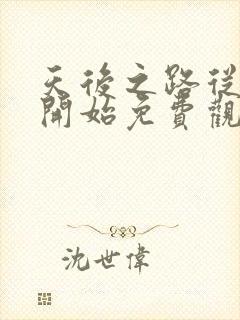 天後之路從
開始免費觀
沈世偉